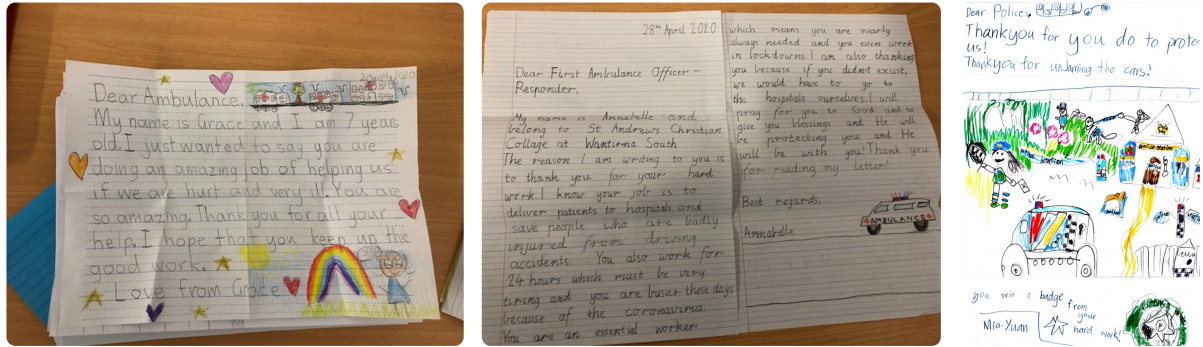 20/04/2020
Dear Ambulance,
My name is Grace and I am 7 years
old. I just wanted to say you are
doing an amazing job of helping us
if we are hurt and very ill. You are
so amazing. Thank you for all your
help. I hope that you keep up the
good work.
Love from Grace
28th April 2020
Dear First Ambulance Officer -
Responder.
My name is Annabelle and
belong to St Andrews Christian
Collage at Wantirna South
The reason I am writing to you is
to thank you for your hard
work. I know your job is to
deliver patients to hospitals and
save people who are badly
injured from driving
accidents. You also work for
24 hours which must be very
tiring and you are busier these days
because of the coronavirus.
You are an essential worker
which means you are nearly
always needed and you even work
in lockdowns. I am also thanking
you because if you didnt excist,
we would have to go to
the hospitals ourselves. I will
pray for you to God and to
give you blessings and He will
be protecting you and He
will be with you! Thank you
for reading my letter!
Best regards,
Annabelle
AMBULANCE
Dear Polices,
Thankyou for you do to protec
us!
Thankyou for unjamming the cars!
you win a badge
from
your
hard work!
Mia-Yuan